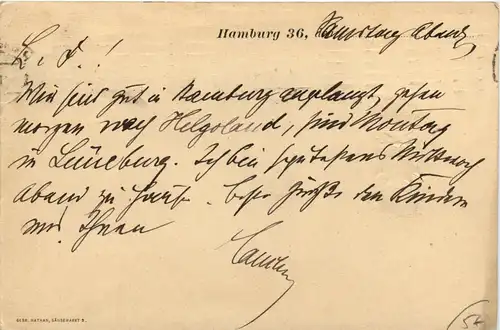 Hamburg 36, Samstag Abend
L. F.!
Wir sind gut in Hamburg angelangt, gehen
morgen nach Helgoland, sind Montag
in Lüneburg. Ich bin spätestens Mittwoch
Abend zu Hause. Beste Grüße den Kindern
und Ihnen
ALBR. NATHAN, GÄNSEMARKT 5.